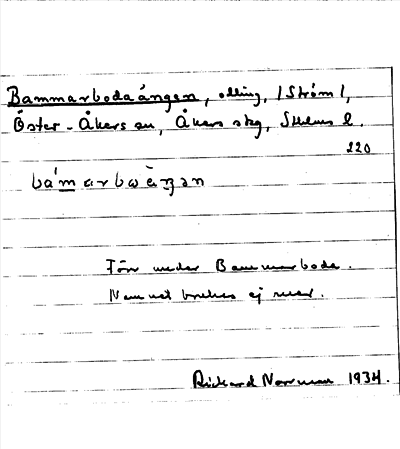 Bammarbodaängen, odling, /Ström/,
Öster-Åkers sn, Åkers skg, Sthlms l.
220
För under Bammarboda.
Namnet brukas ej mer.
Rickard Norrman 1934.